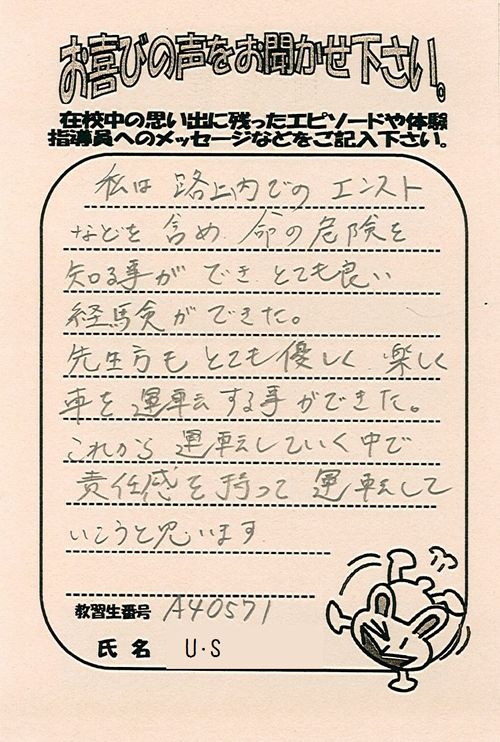 お喜びの声をお聞かせ下さい。
在校中の思い出に残ったエピソードや体験
指導員へのメッセージなどをご記入下さい。
私は 路上内での エンスト
などを 含め 命の危険を
知る事が でき とても良い
経験ができた。
先生方も とても 優しく 楽しく
車を 運転する事ができた。
これから 運転していく中で
責任感を持って 運転して
いこうと思います
教習生番号 A40571
氏名 U・S